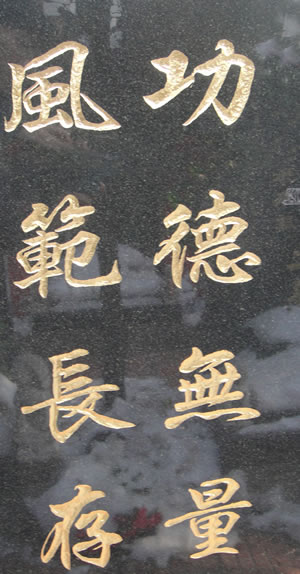 功德無量
風範長存